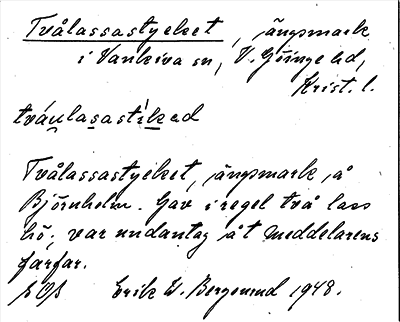 Tvålassastycket, ängsmark
i Vankiva sn, V. Göinge hd,
Krist. l.
tváulasastiked
Tvålassastycket, ängsmark å
Björnholm. Gav i regel två lass
hö; var undantag åt meddelarens
farfar.
Erik W. Bergenund 1948.